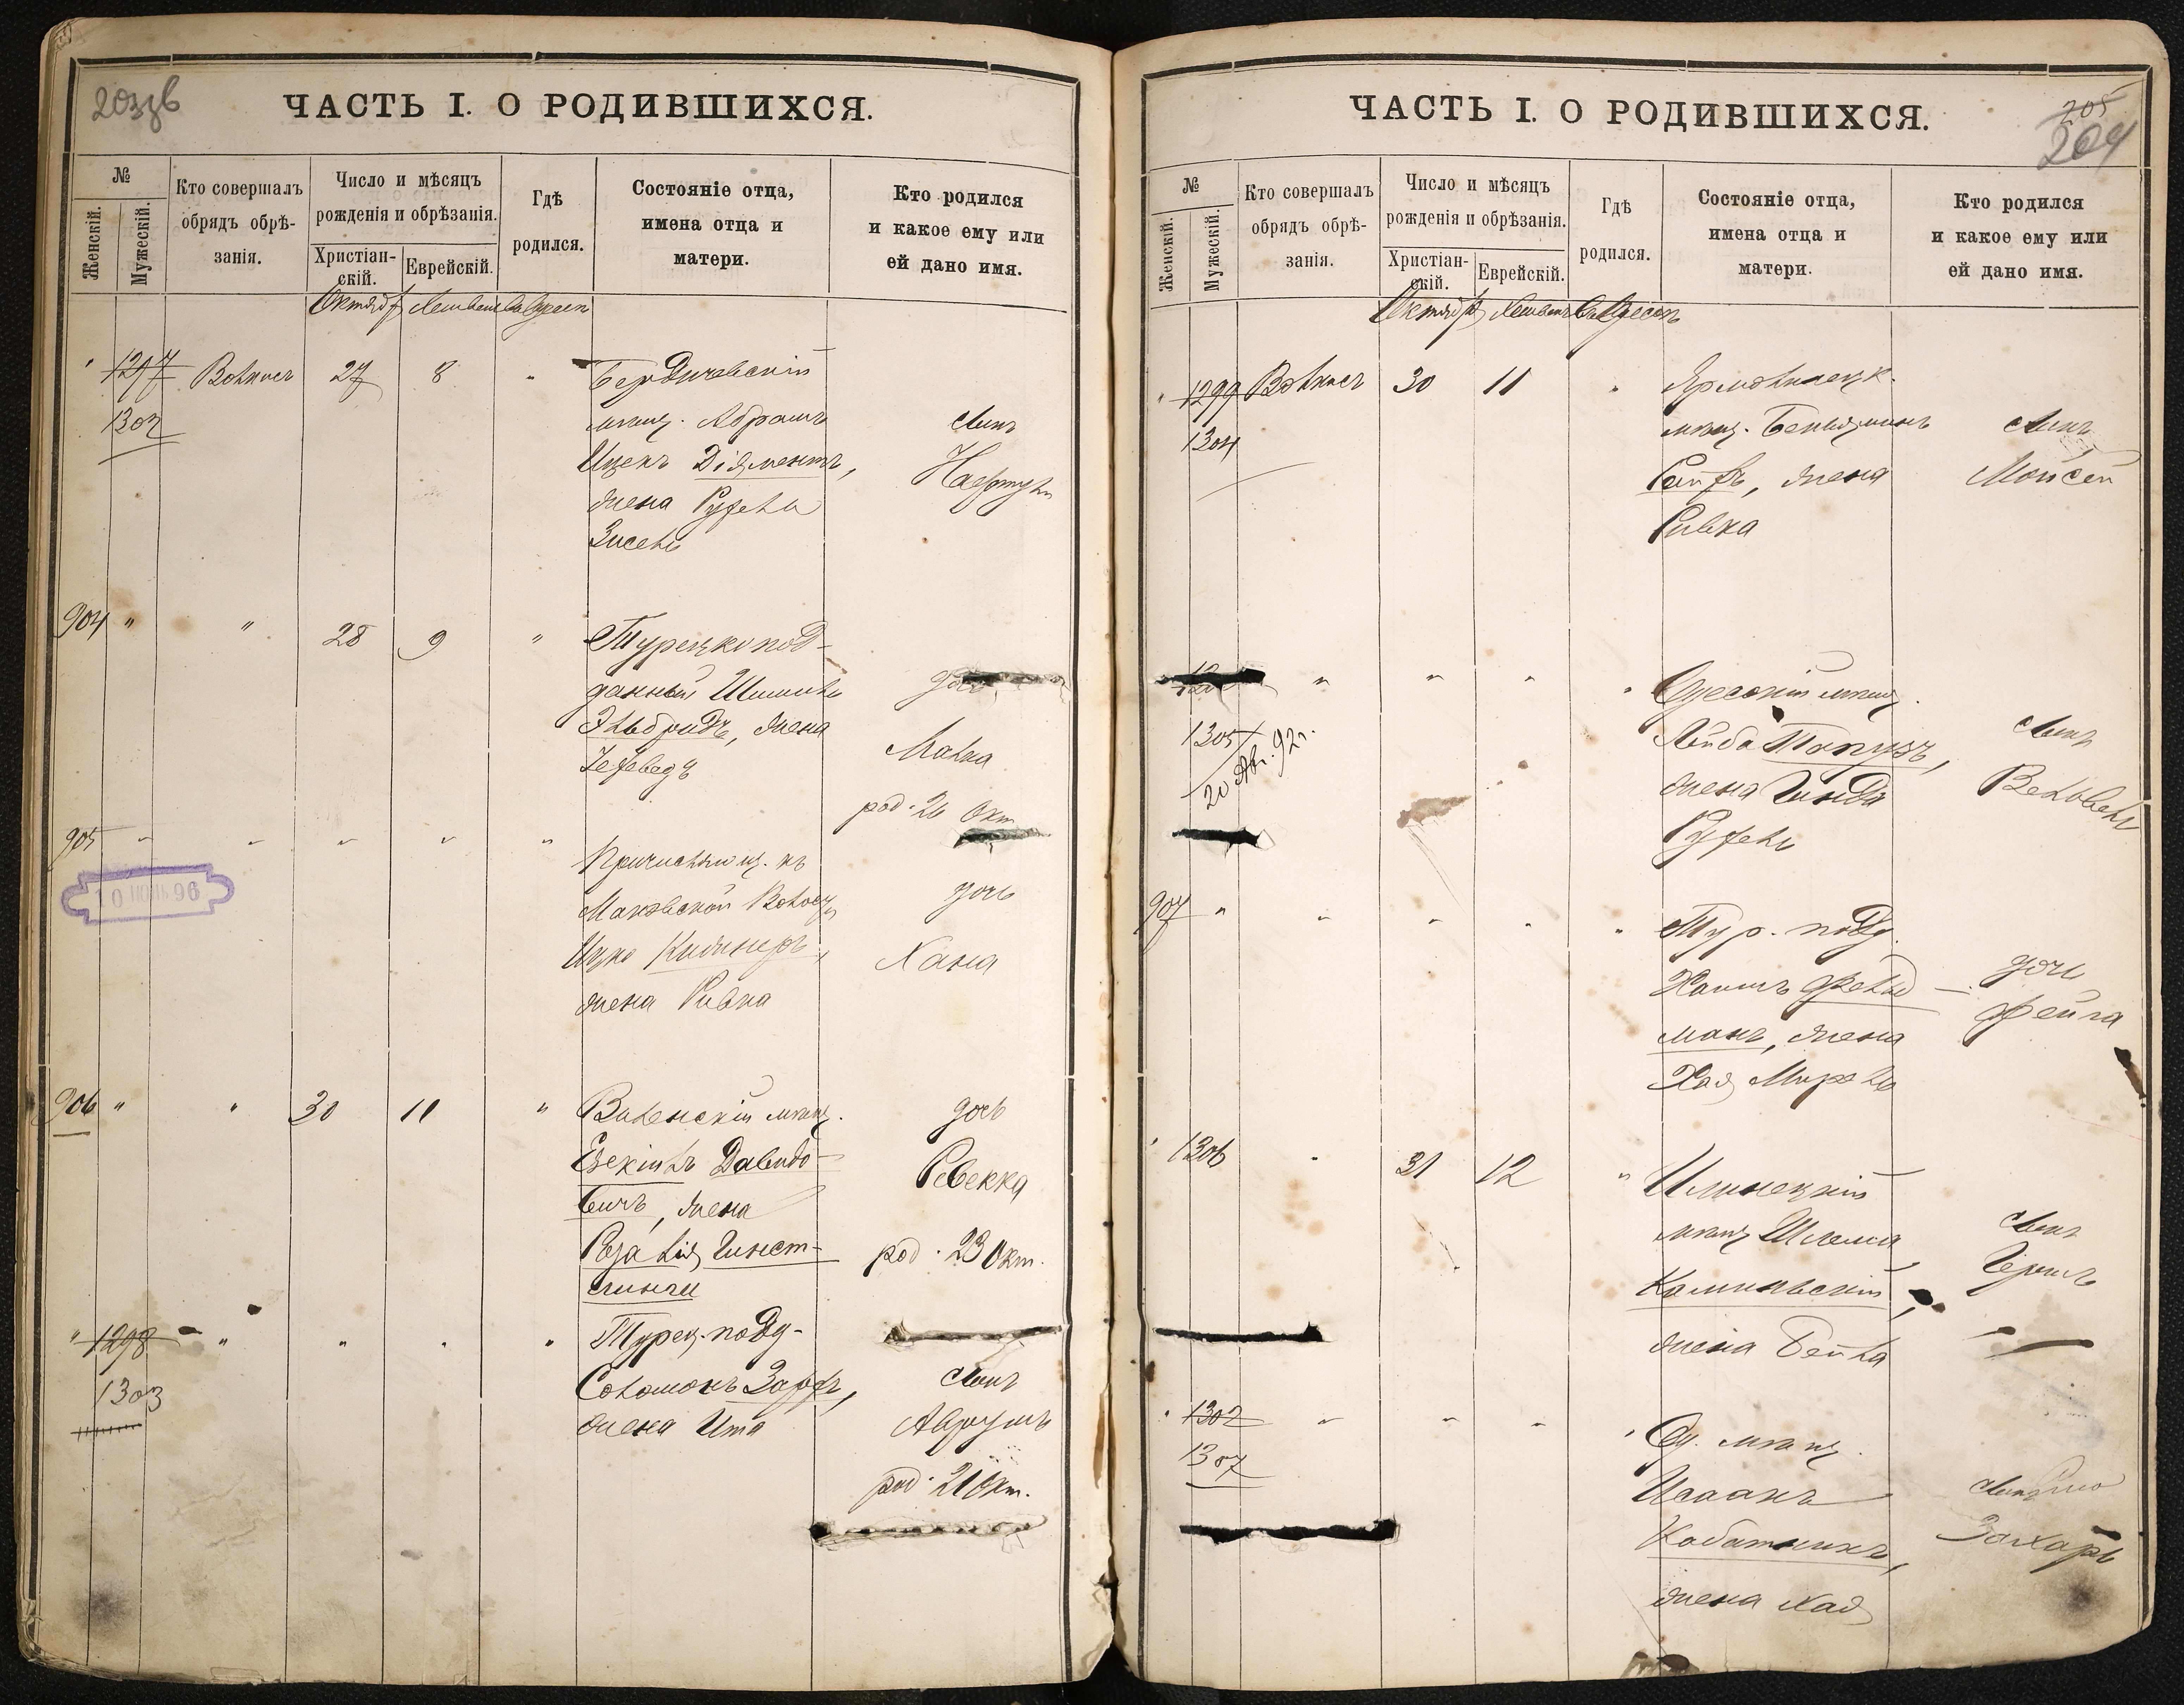 203зв
ЧАСТЬ I. О РОДИВШИХСЯ.
№
Женскій.
Мужескій.
Кто совершалъ
обрядъ обрѣ-
занія.
Число и мѣсяцъ
рожденія и обрѣзанія.
Христіан-
скій.
Еврейскій.
Гдѣ
родился.
Состояніе отца,
имена отца и
матери.
Кто родился
и какое ему или
ей дано имя.
Октября
1297
1302
27
8
Бердичевскій
мѣщ. Абрамъ
Ицекъ Діяментъ,
жена Рухель
Зисель
сынъ
Нафтулъ
904
28
9
Турецкопод-
данный
жена
дочь
Малка
род. 26 Окт
905
Причисляющ. къ
Маковской
Ицко
жена Ривка
дочь
Хана
10 ІЮНЬ 96
906
30
11
Виленскій мѣщ.
Езекіилъ Давидо-
вичъ, жена
дочь
Ревекка
род. 23 Окт.
1298
1303
Турец. подд.
Соломонъ Зарфъ,
жена Ита
сынъ
Аврумъ
род. 21 Окт.
ЧАСТЬ I. О РОДИВШИХСЯ.
205
204
№
Женскій.
Мужескій.
Кто совершалъ
обрядъ обрѣ-
занія.
Число и мѣсяцъ
рожденія и обрѣзанія.
Христіан-
скій.
Еврейскій.
Гдѣ
родился.
Состояніе отца,
имена отца и
матери.
Кто родился
и какое ему или
ей дано имя.
Октября
1299
1304
30
11
Ярмолинецк.
мѣщ. Беньяминъ
жена
Ривка
сынъ
Мойсей
1305
20 Авг. 92 г.
Одесскій мѣщ.
Лейба
жена Гинда
Рухель
сынъ
Вельвель
907
Тур. подд.
Хаимъ Фельд-
манъ, жена
Хая Мирель
дочь
Фейга
1306
31
12
Илинецкій
мѣщ. Шлема
Каминскій,
жена Бейла
сынъ
Гершъ
1302
1307
Од. мѣщ.
Исаакъ
Кабатникъ,
жена Хая
сынъ
Захаръ